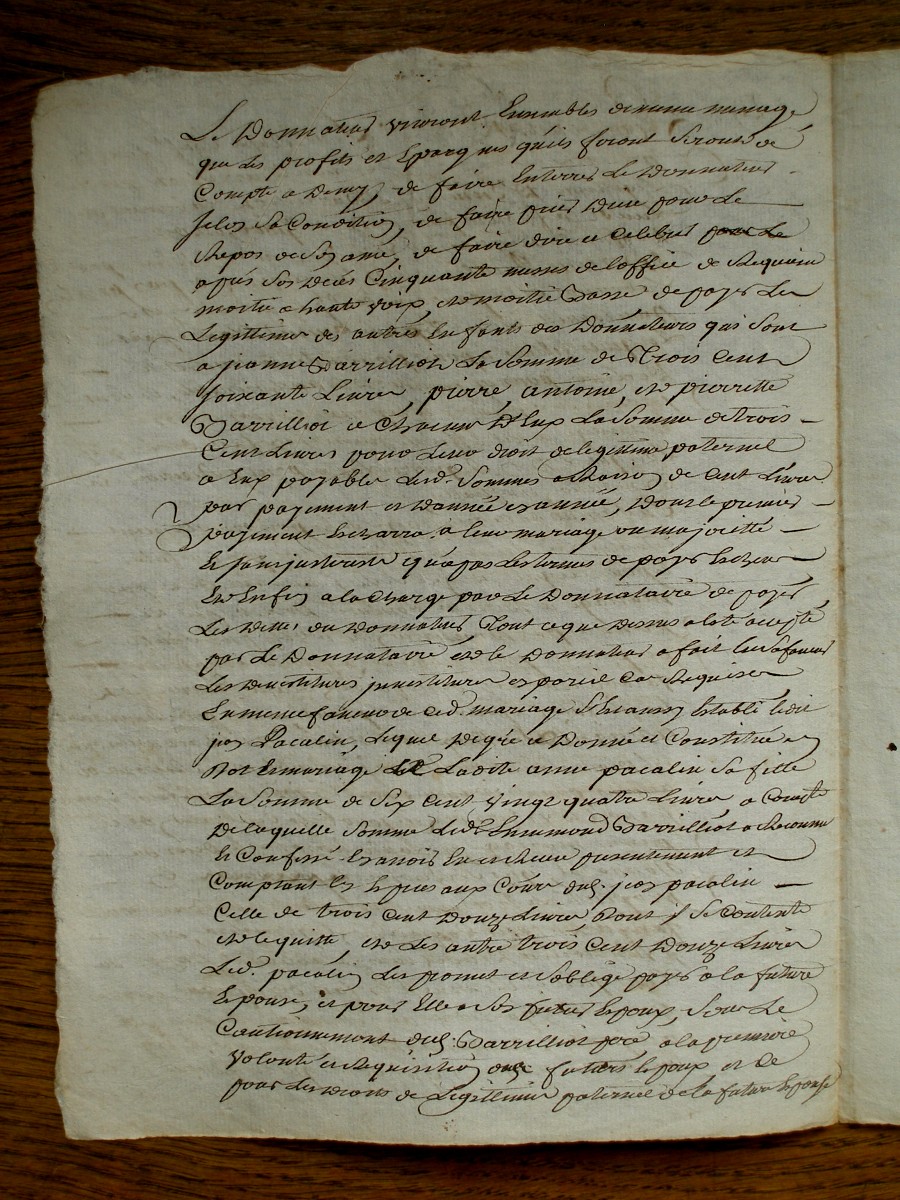 Le Donnateur vivront Ensembles de meme menage
que les profits et Eparques quils feront seront de
Compte a Demy, de faire Enterrer le Donnateur
selon sa Condition, de faire prier Dieu pour Le
Repos de son ame, de faire dire et Celebrer
apres son deces Cinquante messes de loffice de Requiem
moitié a haute voix, et moitié Basse de payer Les
Legittimes des autres Enfants des Donnateurs qui sont
a jeanne Barrilliot La somme de Trois Cent
soixante Livres, pierre, antoine, et pierrette
Barrilliot a Chacun D'Eux La somme de trois
Cent Livres pour leur droit de legitime paternel
a Eux payables Lesd. sommes a Raison de Cent Livres
par payement et Dannée en année, Dont le premier
payement Echerra a leur mariage ou majorité
Et sans interests qu'apres les termes de payer Echeus
Et Enfin a la Charge par Le Donnataire de payer
Les Dettes du Donnateur, Tout ce que Dessus a été accepté
par Le Donnataire et le Donnateur a fait en sa faveur
Les devestitures investitures en pareil Cas Requises
En meme faveur de ced. mariage s'est aussy Etabli ledit
jean Pacalin, Lequel De gré a Donné et Constitué en
Dot En mariage a Ladite anne pacalin sa fille
La somme de six Cent vingt quatre Livres a Compte
De laquelle somme Led. Ennemond Barrilliot a Reconnu
Et Confessé avoir Eu et Receu presentement et
Comptant En Especes aux Cours dud. jean pacalin
Celle de trois Cent Douze Livres Dont il se Contente
et le quitte, et Les autre trois Cent Douze Livres
Led. pacalin Les promet et s'oblige payer a la future
Epouse, et pour Elle a son futur Epoux, sous Le
Cautionnement dud. Barrilliot pere a la premiere
volonté et Requisition des futurs Epoux et ce
pour Les Droits de Legittime paternel de la future Epouse